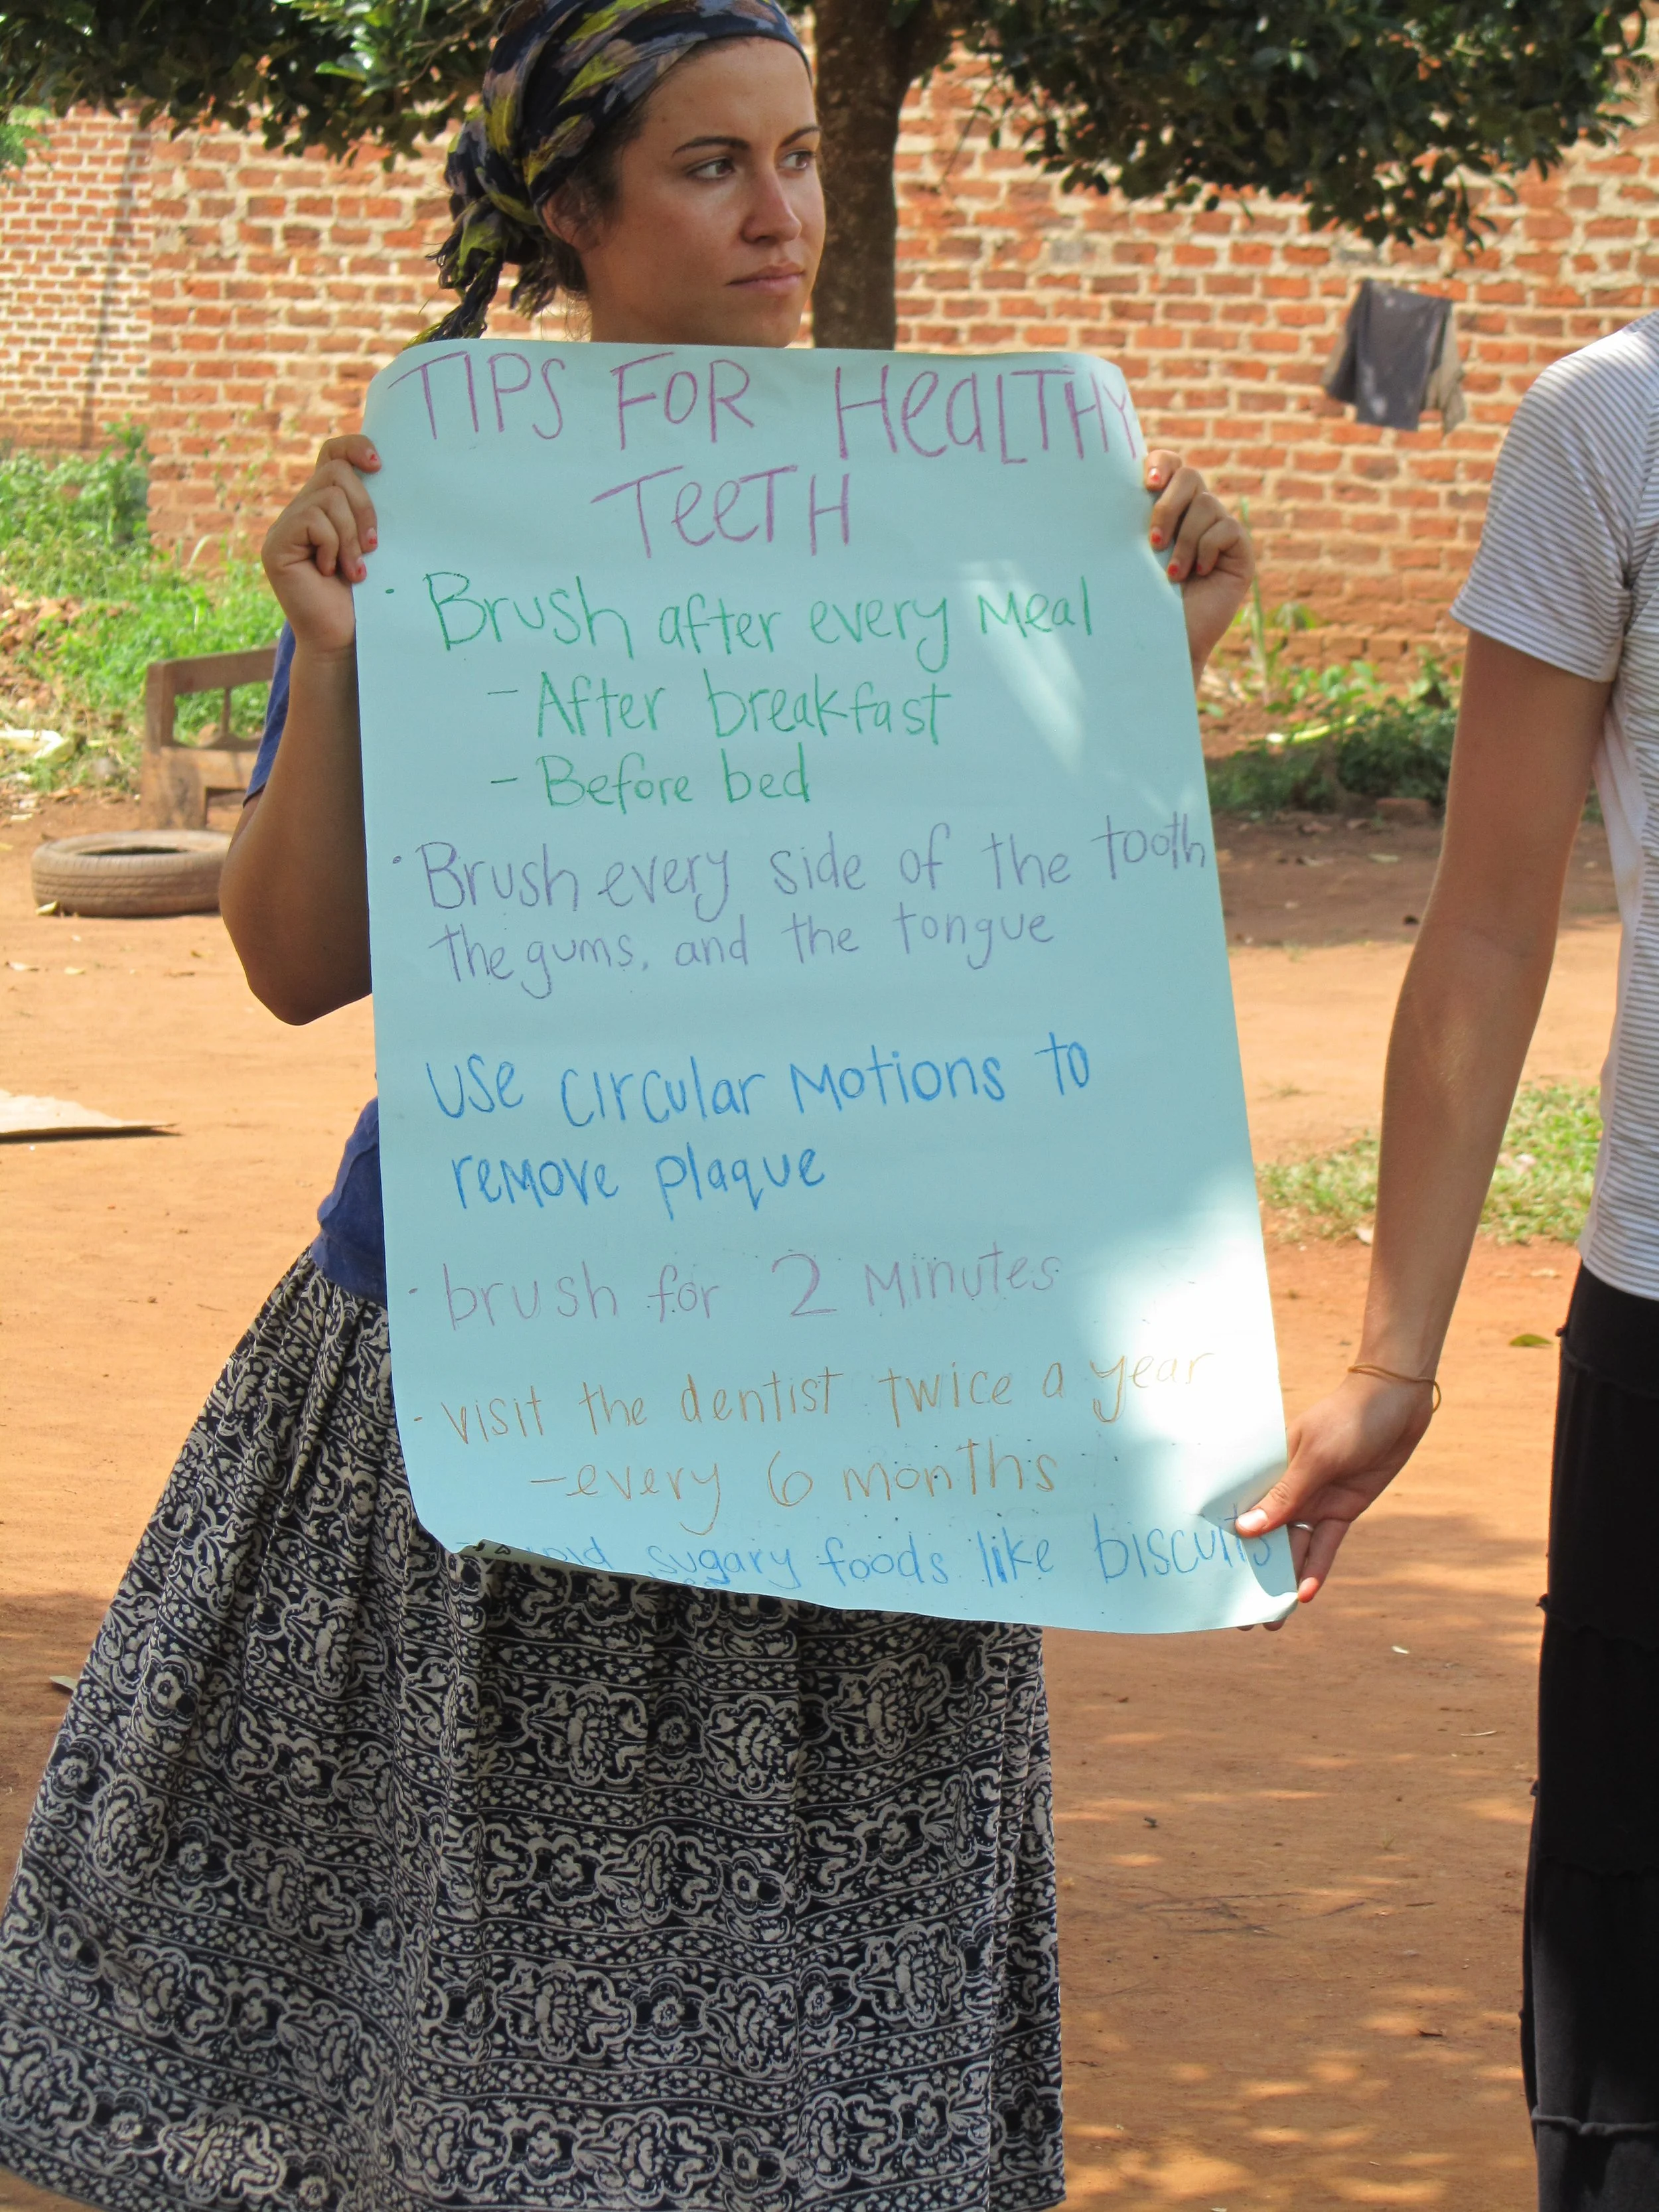 TIPS FOR HeaLTHY
TeeTH
· Brush after every Meal
- After breakfast
- Before bed
· Brush every side of the tooth
the gums, and the tongue
Use circular Motions to
reMove plaque
· brush for 2 Minutes
- visit the dentist twice a year
- every 6 months
sugary foods like biscuits